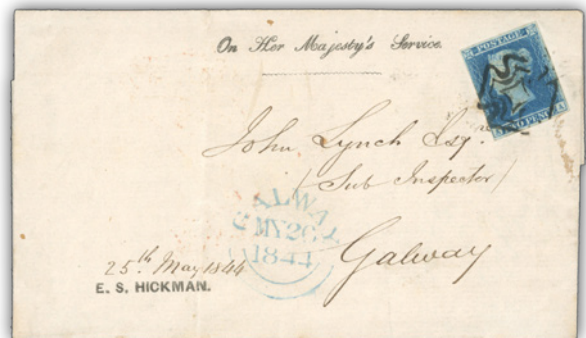 On Her Majesty's Service.
POSTAGE
TWO PENCE
John Lynch Esqr.
(Sub Inspector)
GALWAY
MY 26
1844
Galway
25th May 1844
E. S. HICKMAN.